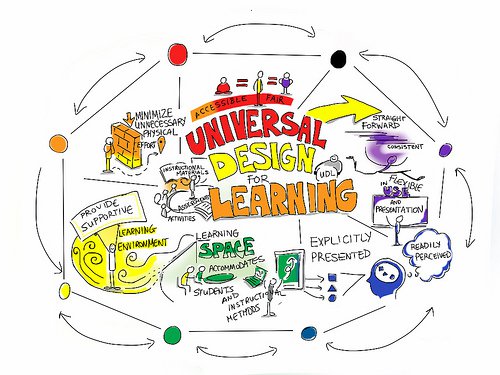 ACCESSIBLE FAIR
UNIVERSAL
DESIGN
FOR
LEARNING
UDL
STRAIGHT
FORWARD
CONSISTENT
FLEXIBLE
IN
AND
PRESENTATION
READILY
PERCEIVED
EXPLICITLY
PRESENTED
LEARNING
SPACE
ACCOMMODATES
STUDENTS
AND
INSTRUCTIONAL
METHODS
PROVIDE
SUPPORTIVE
LEARNING
ENVIRONMENT
INSTRUCTIONAL
MATERIALS
ASSESSMENTS
ACTIVITIES
MINIMIZE
UNNECESSARY
PHYSICAL
EFFORT